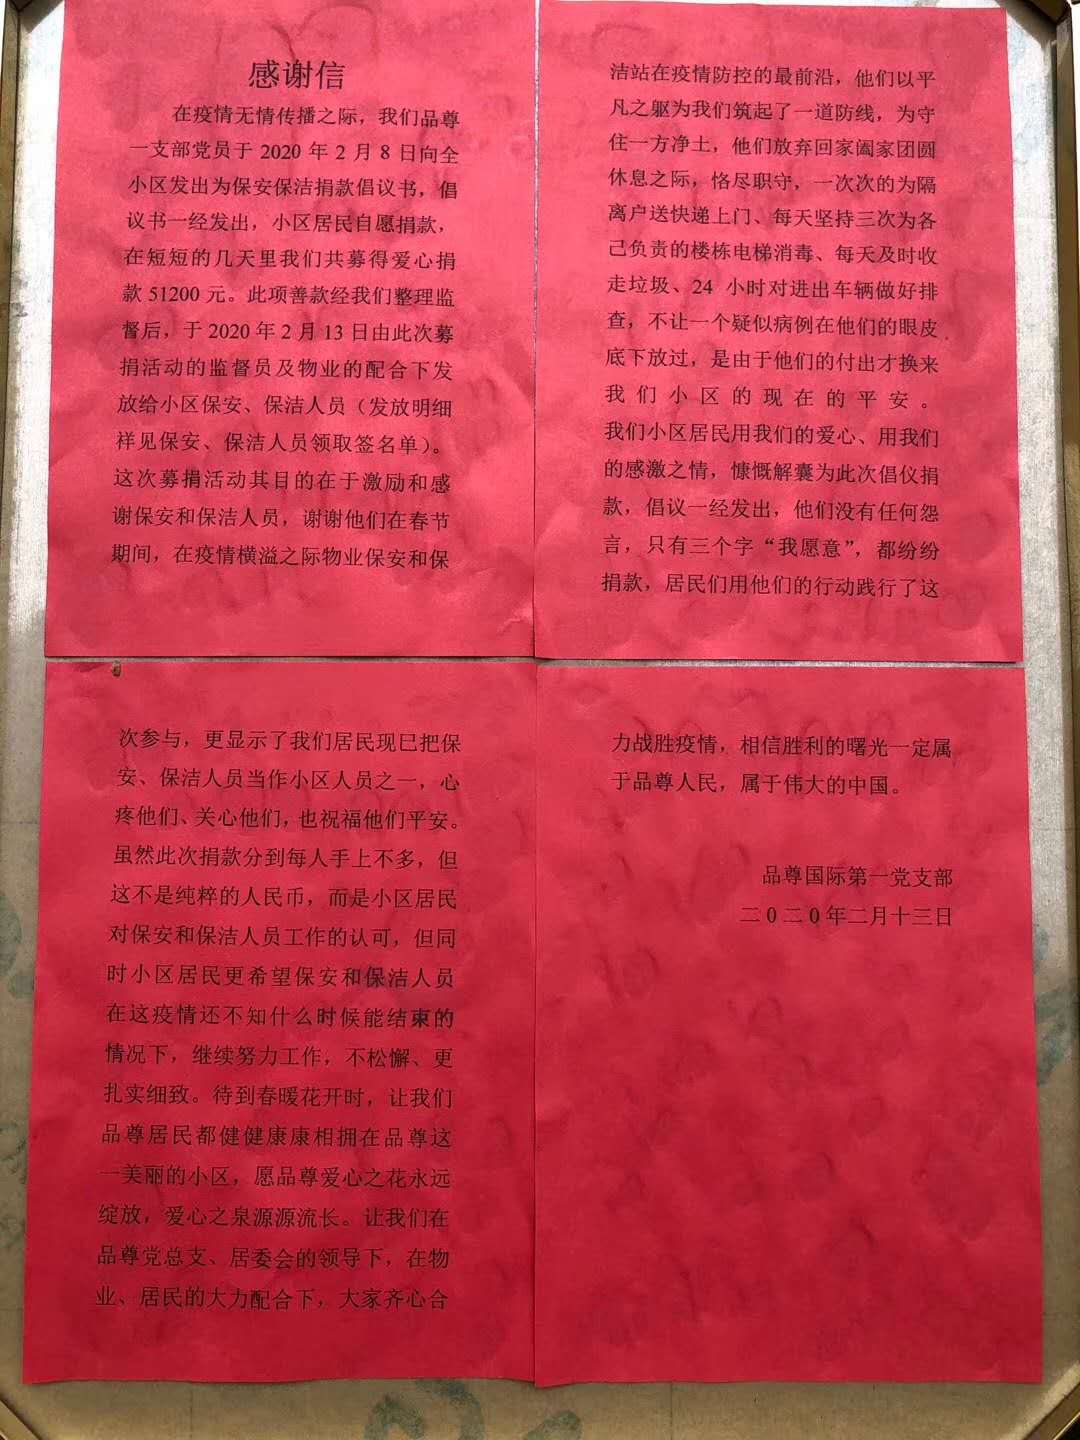 感谢信
在疫情无情传播之际，我们品尊
一支部党员于 2020 年 2 月 8 日向全
小区发出为保安保洁捐款倡议书，倡
议书一经发出，小区居民自愿捐款，
在短短的几天里我们共募得爱心捐
款 51200 元。此项善款经我们整理监
督后，于 2020 年 2 月 13 日由此次募
捐活动的监督员及物业的配合下发
放给小区保安、保洁人员（发放明细
祥见保安、保洁人员领取签名单）。
这次募捐活动其目的在于激励和感
谢保安和保洁人员，谢谢他们在春节
期间，在疫情横溢之际物业保安和保
洁站在疫情防控的最前沿，他们以平
凡之躯为我们筑起了一道防线，为守
住一方净土，他们放弃回家阖家团圆
休息之际，恪尽职守，一次次的为隔
离户送快递上门、每天坚持三次为各
己负责的楼栋电梯消毒、每天及时收
走垃圾、24 小时对进出车辆做好排
查，不让一个疑似病例在他们的眼皮
底下放过，是由于他们的付出才换来
我们小区的现在的平安。
我们小区居民用我们的爱心、用我们
的感激之情，慷慨解囊为此次倡仪捐
款，倡议一经发出，他们没有任何怨
言，只有三个字“我愿意”，都纷纷
捐款，居民们用他们的行动践行了这
次参与，更显示了我们居民现巳把保
安、保洁人员当作小区人员之一，心
疼他们、关心他们，也祝福他们平安。
虽然此次捐款分到每人手上不多，但
这不是纯粹的人民币，而是小区居民
对保安和保洁人员工作的认可，但同
时小区居民更希望保安和保洁人员
在这疫情还不知什么时候能结束的
情况下，继续努力工作，不松懈、更
扎实细致。待到春暖花开时，让我们
品尊居民都健健康康相拥在品尊这
一美丽的小区，愿品尊爱心之花永远
绽放，爱心之泉源源流长。让我们在
品尊党总支、居委会的领导下，在物
业、居民的大力配合下，大家齐心合
力战胜疫情，相信胜利的曙光一定属
于品尊人民，属于伟大的中国。
品尊国际第一党支部
二 0 二 0 年二月十三日